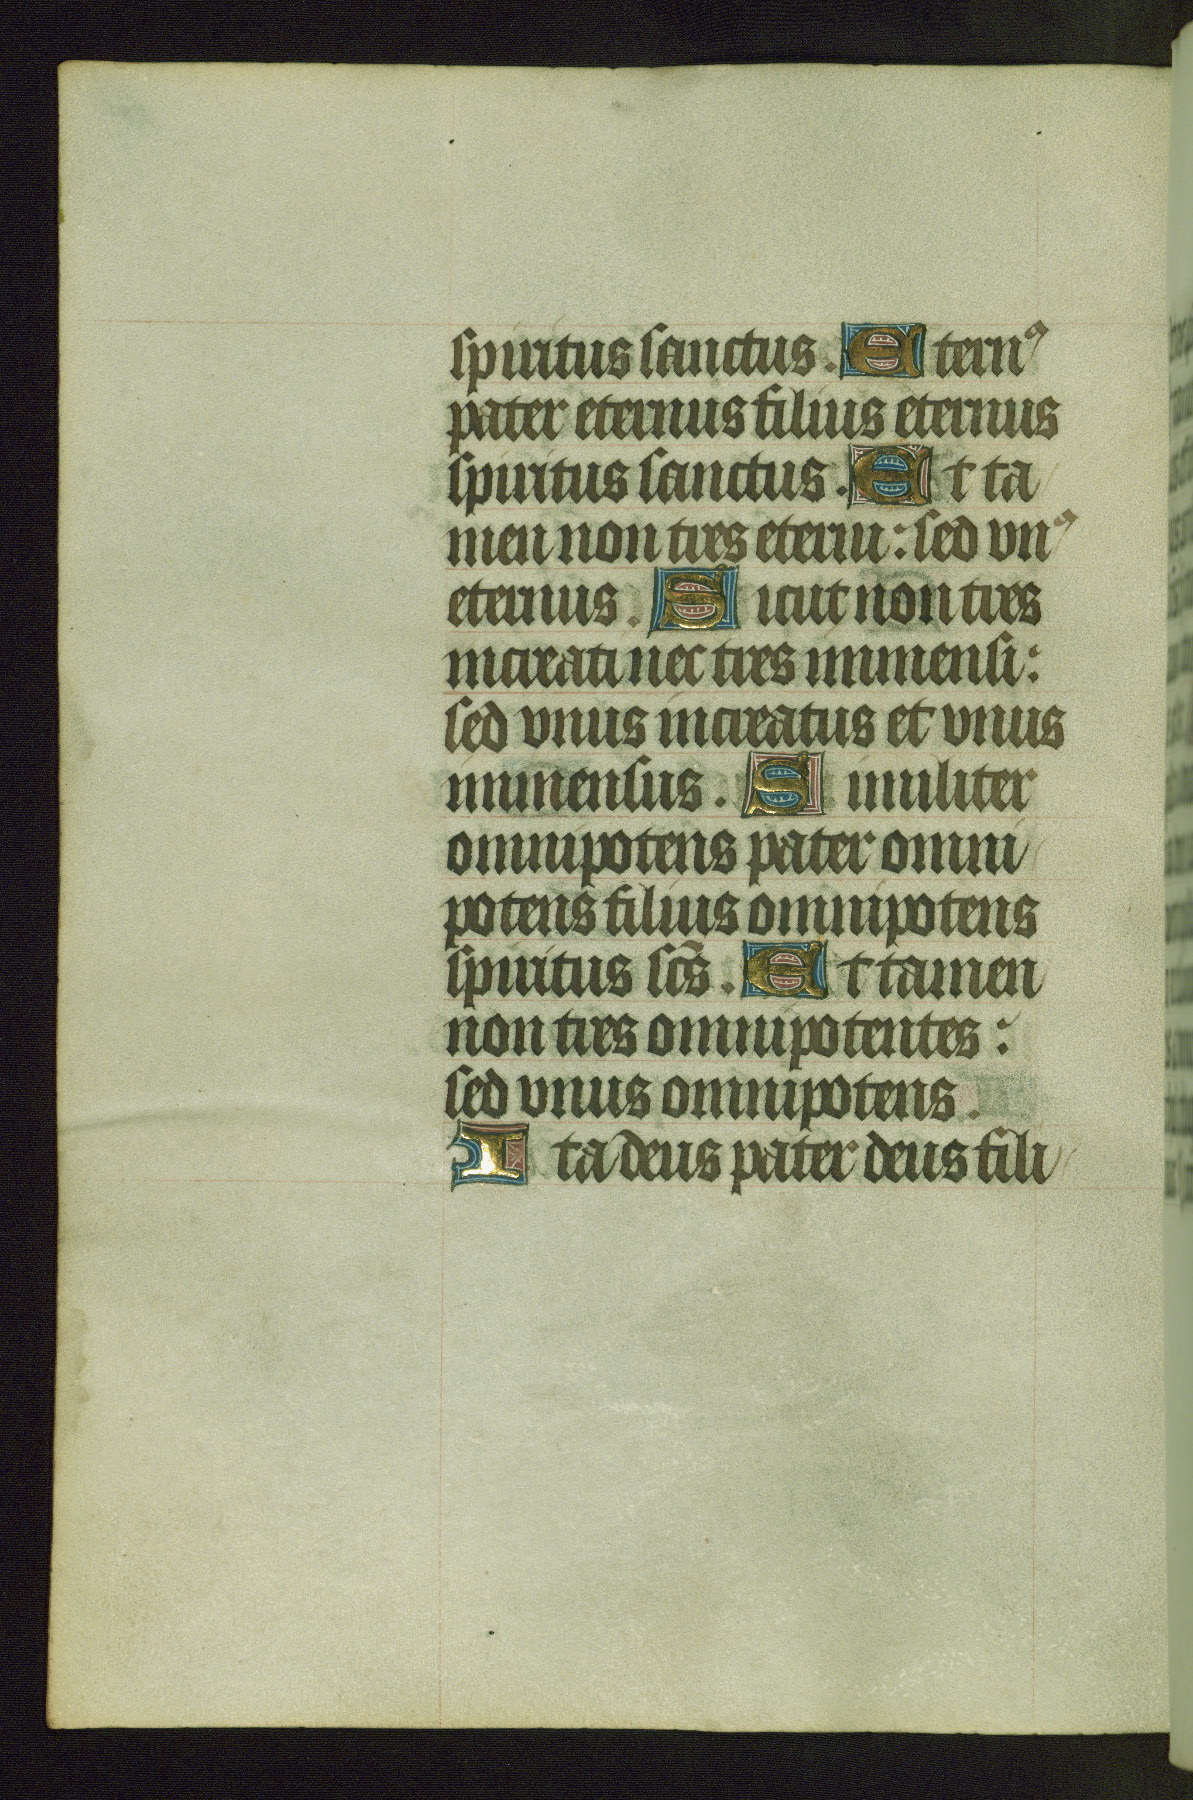 spiritus sanctus. Etern⁹
pater eternus filius eternus
spiritus sanctus. Et ta
men non tres eterni: sed vn⁹
eternus. Sicut non tres
increati nec tres immensi:
sed vnus increatus et vnus
immensus. Similiter
omnipotens pater omni
potens filius omnipotens
spiritus scs̄. Et tamen
non tres omnipotentes:
sed vnus omnipotens.
Ita deus pater deus fili